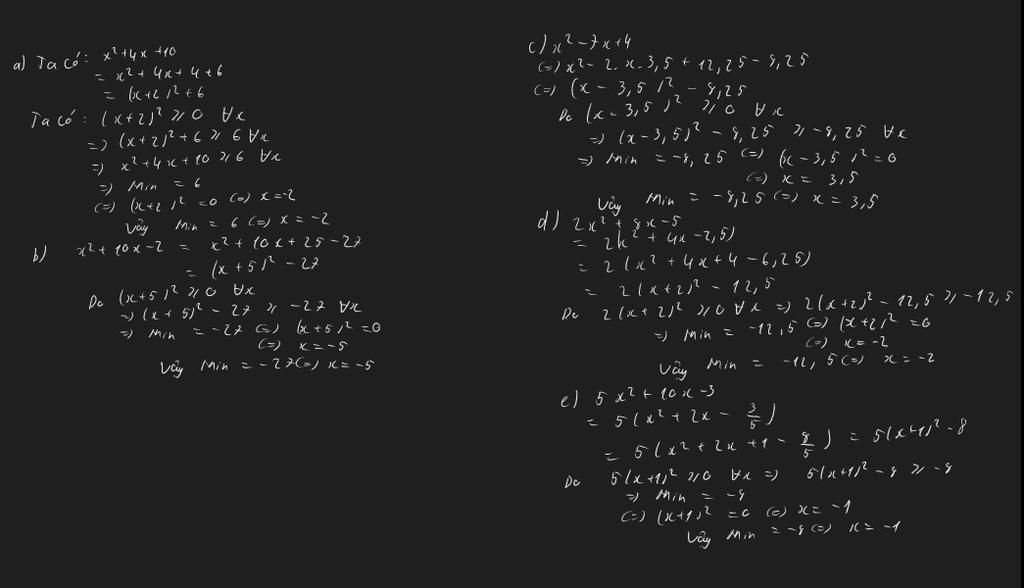 a) Ta có: x² + 4x + 10
= x² + 4x + 4 + 6
= (x+2)² + 6
Ta có: (x+2)² ≥ 0 ∀x
=> (x+2)² + 6 ≥ 6 ∀x
=> x² + 4x + 10 ≥ 6 ∀x
=> Min = 6
(=) (x+2)² = 0 (=) x = -2
Vậy Min = 6 (=) x = -2
b) x² + 10x - 2 = x² + 10x + 25 - 27
= (x+5)² - 27
Do (x+5)² ≥ 0 ∀x
=> (x+5)² - 27 ≥ -27 ∀x
=> Min = -27 (=) (x+5)² = 0
(=) x = -5
Vậy Min = -27 (=) x = -5
c) x² - 7x + 4
(=) x² - 2.x.3,5 + 12,25 - 8,25
(=) (x - 3,5)² - 8,25
Do (x - 3,5)² ≥ 0 ∀x
=> (x - 3,5)² - 8,25 ≥ -8,25 ∀x
=> Min = -8,25 (=) (x - 3,5)² = 0
(=) x = 3,5
Vậy Min = -8,25 (=) x = 3,5
d) 2x² + 8x - 5
= 2(x² + 4x - 2,5)
= 2(x² + 4x + 4 - 6,25)
= 2(x+2)² - 12,5
Do 2(x+2)² ≥ 0 ∀x => 2(x+2)² - 12,5 ≥ -12,5
=> Min = -12,5 (=) (x+2)² = 0
(=) x = -2
Vậy Min = -12,5 (=) x = -2
e) 5x² + 10x - 3
= 5(x² + 2x - 3/5)
= 5(x² + 2x + 1 - 8/5) = 5(x+1)² - 8
Do 5(x+1)² ≥ 0 ∀x => 5(x+1)² - 8 ≥ -8
=> Min = -8
(=) (x+1)² = 0 (=) x = -1
Vậy Min = -8 (=) x = -1